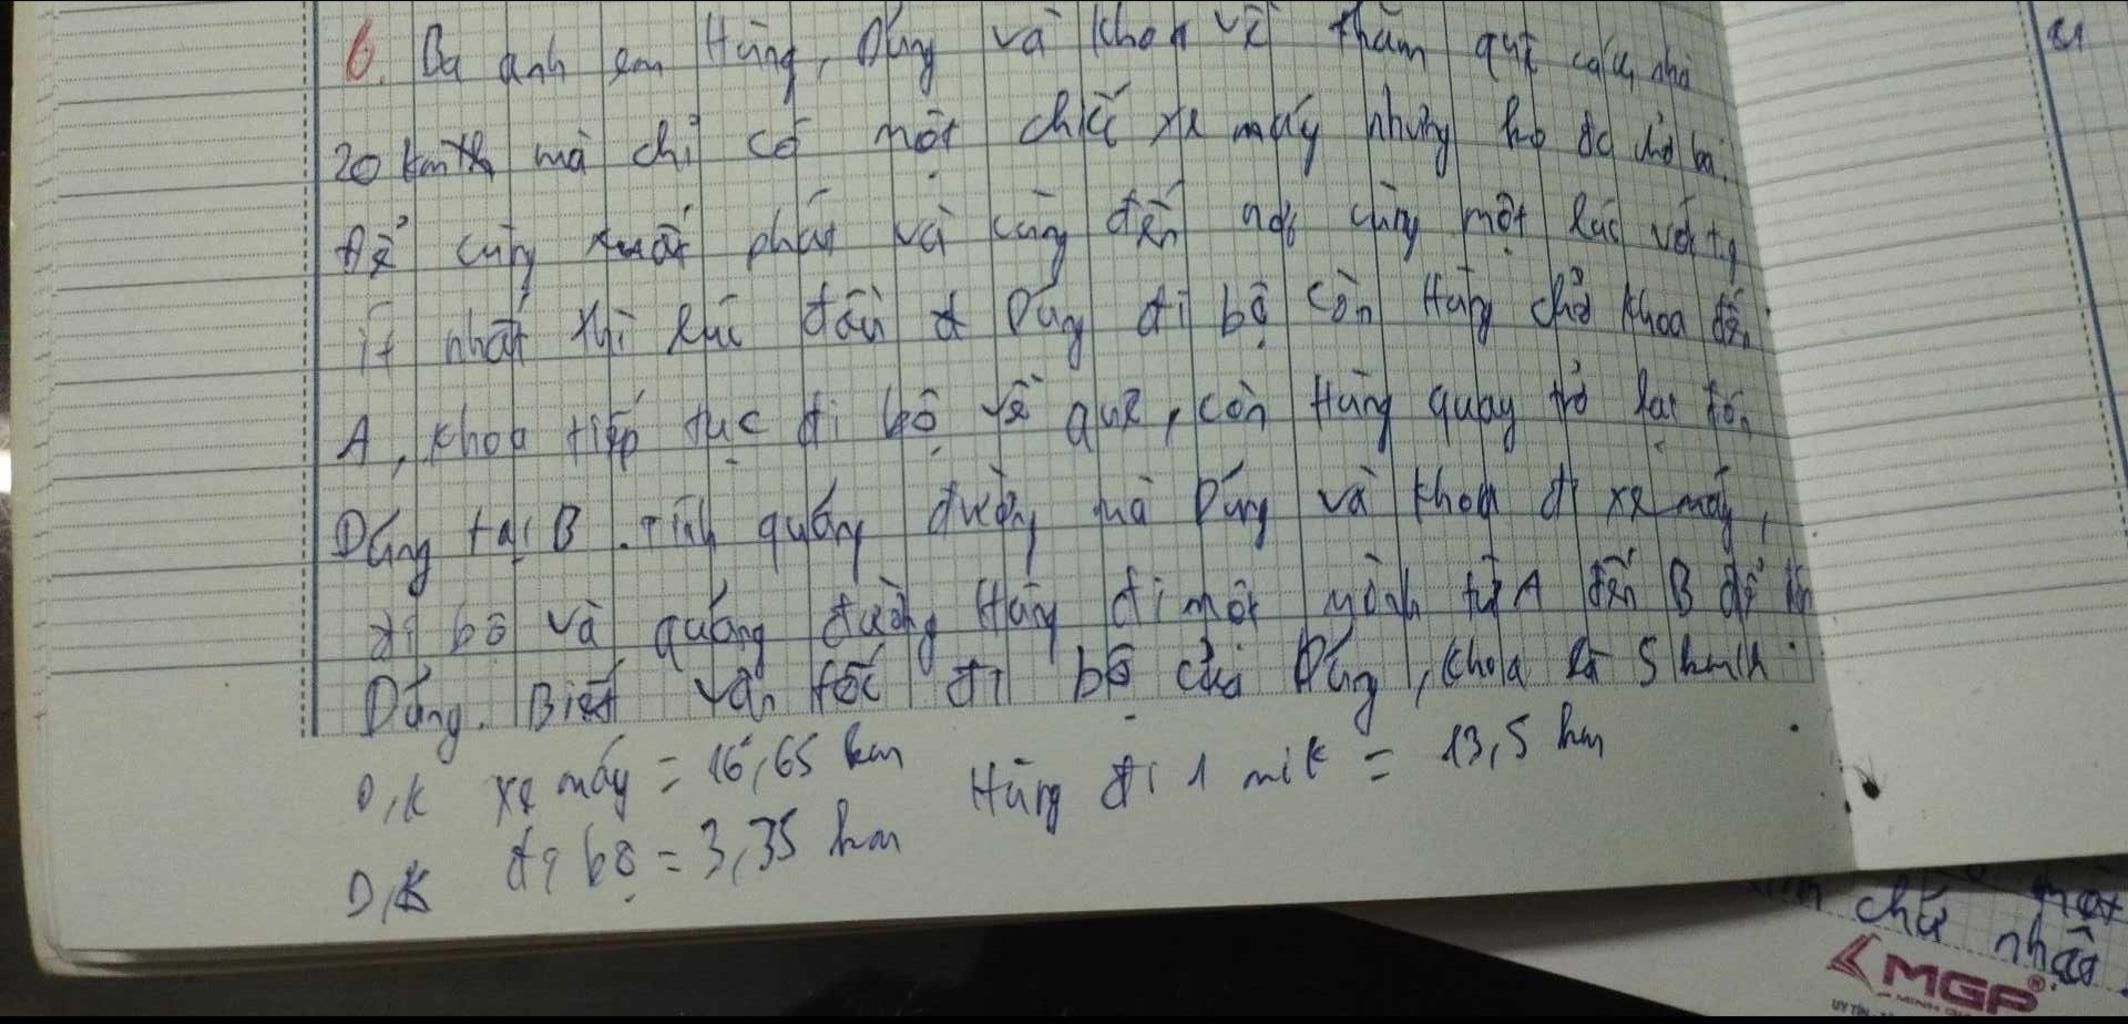 6. Ba anh em Hùng, Dũng và Khoa về thăm quê cách nhà
20 km mà chỉ có một chiếc xe máy nhưng ko đc chở ba.
Để cùng xuất phát và cùng đến nơi cùng một lúc với tg
ít nhất thì lúc đầu Dũng đi bộ còn Hùng chở Khoa đến
A, Khoa tiếp tục đi bộ về quê, còn Hùng quay trở lại đón
Dũng tại B. Tính quãng đường mà Dũng và Khoa đi xe máy,
đi bộ và quãng đường Hùng đi một mình từ A đến B để đón
Dũng. Biết vận tốc đi bộ của Dũng, Khoa là 5 km/h
D, K xe máy = 16,65 km Hùng đi 1 mik = 13,5 km
D, K đi bộ = 3,35 km
chữ nhật
MGP®
UY TÍN